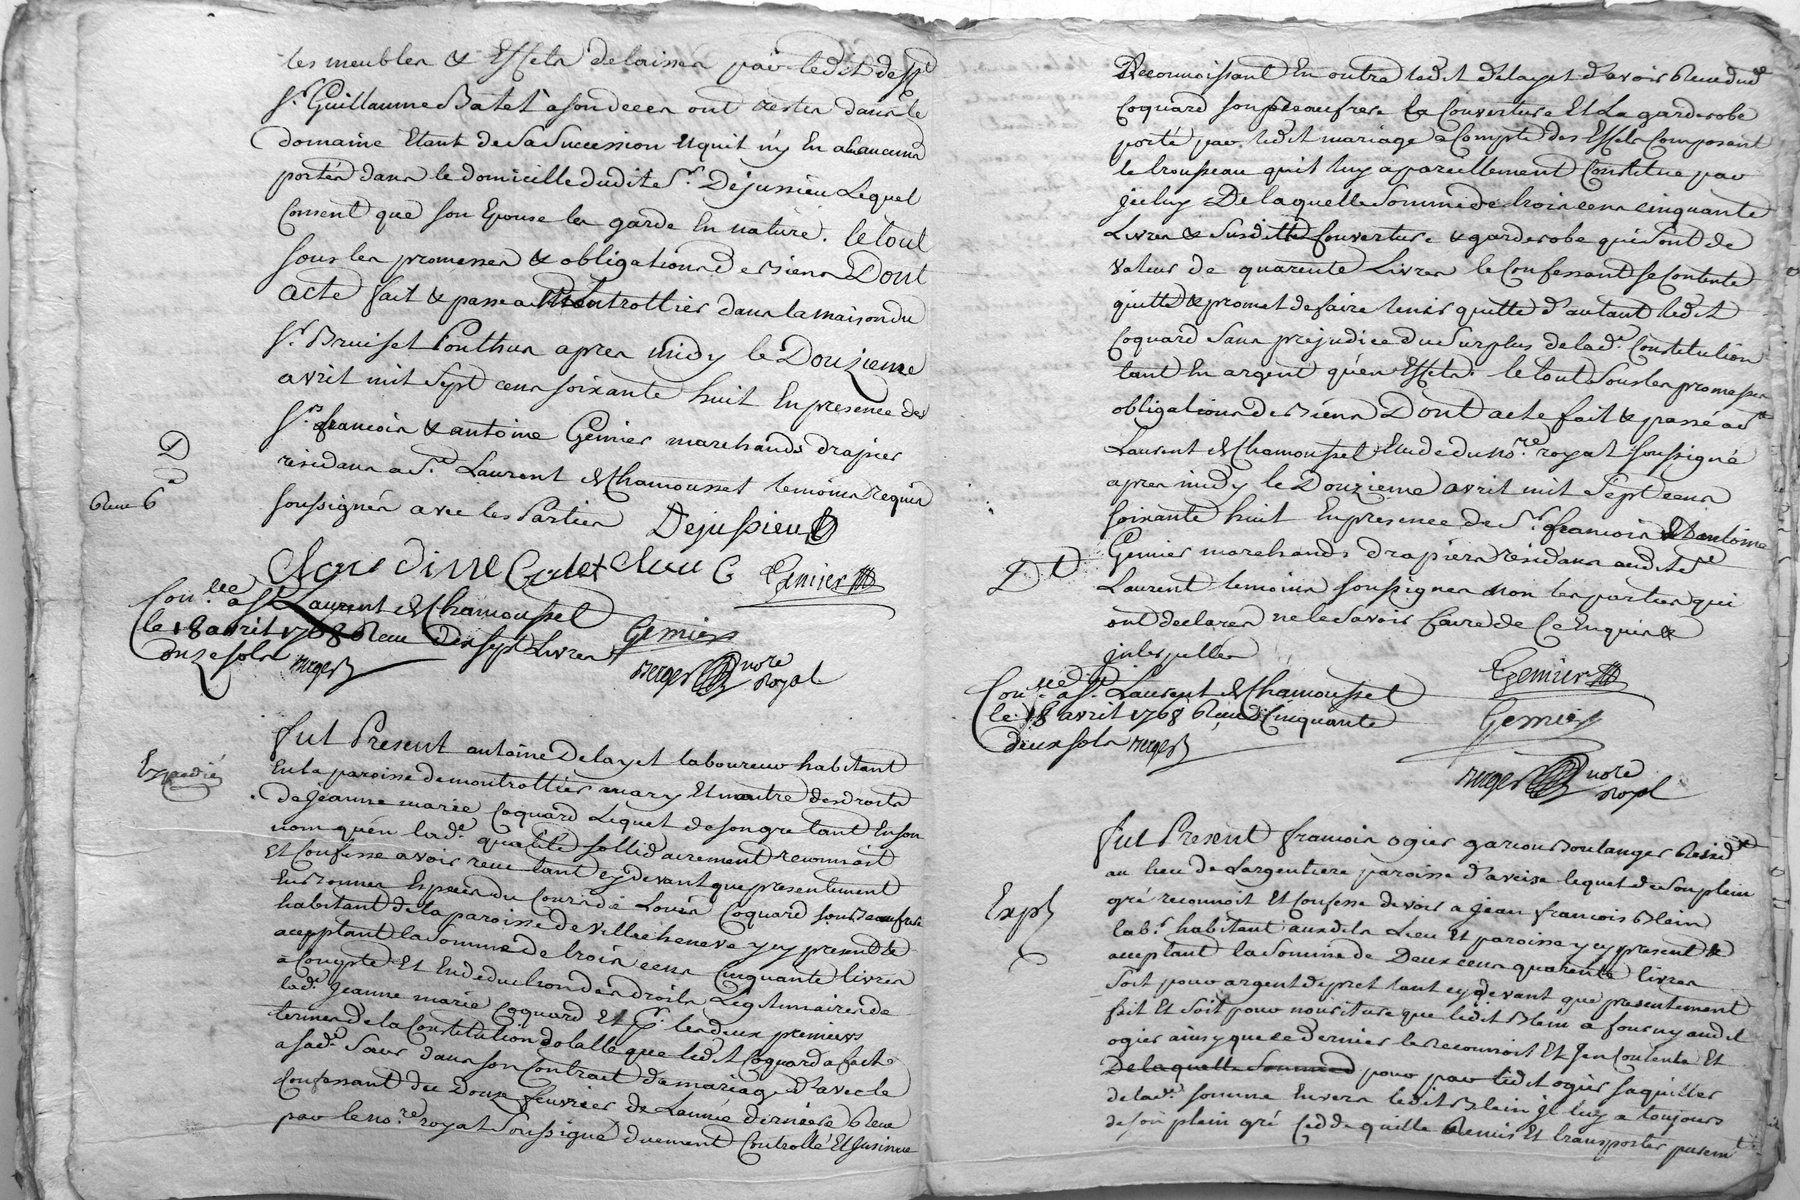 les meubles & Effets delaissés par ledit defft
Sr. Guillaume Batet a son deces ont restés dans le
domaine Etant de Sa Succession et quil ny En a aucuns
portés dans le domicille dudit Sr. Dejussieu Lequel
Consent que son Epouse les garde En nature. le tout
sous les promesses & obligations de biens Dont
acte fait & passé a Montrottier dans la maison du
Sr. Bruiset Ponthus apres midy le Douzieme
avril mil Sept cens soixante huit En presence des
Srs. francois & antoine Gemier marchands drapiers
residans a St. Laurent de Chamousset temoins requis
soussignés avec les Parties Dejussieu
Claudine Gemier
D
Reçu 6
Con.lée a St Laurent de Chamousset
le 18 avril 1768 Reçu dix sept Livres
onze sols Berger
Gemier
Berger nore
Royal
Expedié
fut Present antoine Delayet laboureur habitant
En la paroisse de montrottier mary Et maitre des droits
de Jeanne marie Coquard Lequel de son gré tant En son
nom quén lade. qualité sollidairement reconnoit
Et Confesse avoir reçu tant cydevant que presentement
En bonnes Especes du Cours de Louis Coquard son Beaufrere
habitant de la paroisse de Villecheneve y cy present &
acceptant la Somme de trois cens Cinquante livres
a Compte Et En deduction des droits Legitimaires de
lade. Jeanne marie Coquard Et pr. les deux premiers
termes de la Constitution dotalle que ledit Coquard a faite
a sade. Soeur dans son Contrat de mariage d'avec le
Confessant du Douze fevrier de Lannée derniere Reçu
par le nore. royal Soussigné duement Controllé Et Insinué
Reconnoissant En outre ledit delayet d'avoir Reçu dud.
Coquard son beaufrere la Couverture Et La garderobe
porté par ledit mariage a Compte des Effets Composant
le trousseau quil luy a pareillement Constitué par
jceluy De laquelle Somme de trois cens cinquante
Livres & Susditte Couverture & garderobe qui Sont de
valeur de quarente Livres le Confessant se Contente
quitte & promet de faire tenir quitte d'autant ledit
Coquard Sans prejudice du Surplus de lade. Constitution
tant En argent quén Effets. le tout Sous les promesses
obligations de biens Dont acte fait & passé a St
Laurent de Chamousset Etude du nore. royal soussigné
apres midy le Douzieme avril mil Sept cens
soixante huit En presence de Sr. francois & antoine
Gemier marchands drapiers residans audit St
Laurent temoins soussignes non les parties qui
ont declarés ne le Savoir faire de Ce Enquis &
jnterpellés
Con.lé a St. Laurent de Chamousset
le 18 avril 1768 Reçu Cinquante
deux sols Berger
Gemier
Gemier
Berger nore
Royal
Expé
fut Present francois ogier garcon Boulanger Resid.t
au lieu de Largentiere paroisse d'aveise lequel de son plein
gré reconnoit Et Confesse devoir a jean francois Blein
labr. habitant aux dits Lieu Et paroisse y cy present &
acceptant la Somme de Deux cens quarente livres
Soit pour argent de pret tant cydevant que presentement
fait Et Soit pour nouriture que ledit Blein a fourny audit
ogier ainsy que ce dernier le reconnoit Et s'en Contente Et
De laquelle Somme pour par ledit ogier saquitter
de lade. somme Envers ledit Blein jl luy a toujours
de son plein gré Cedde quitte Remis Et transporter purem.t